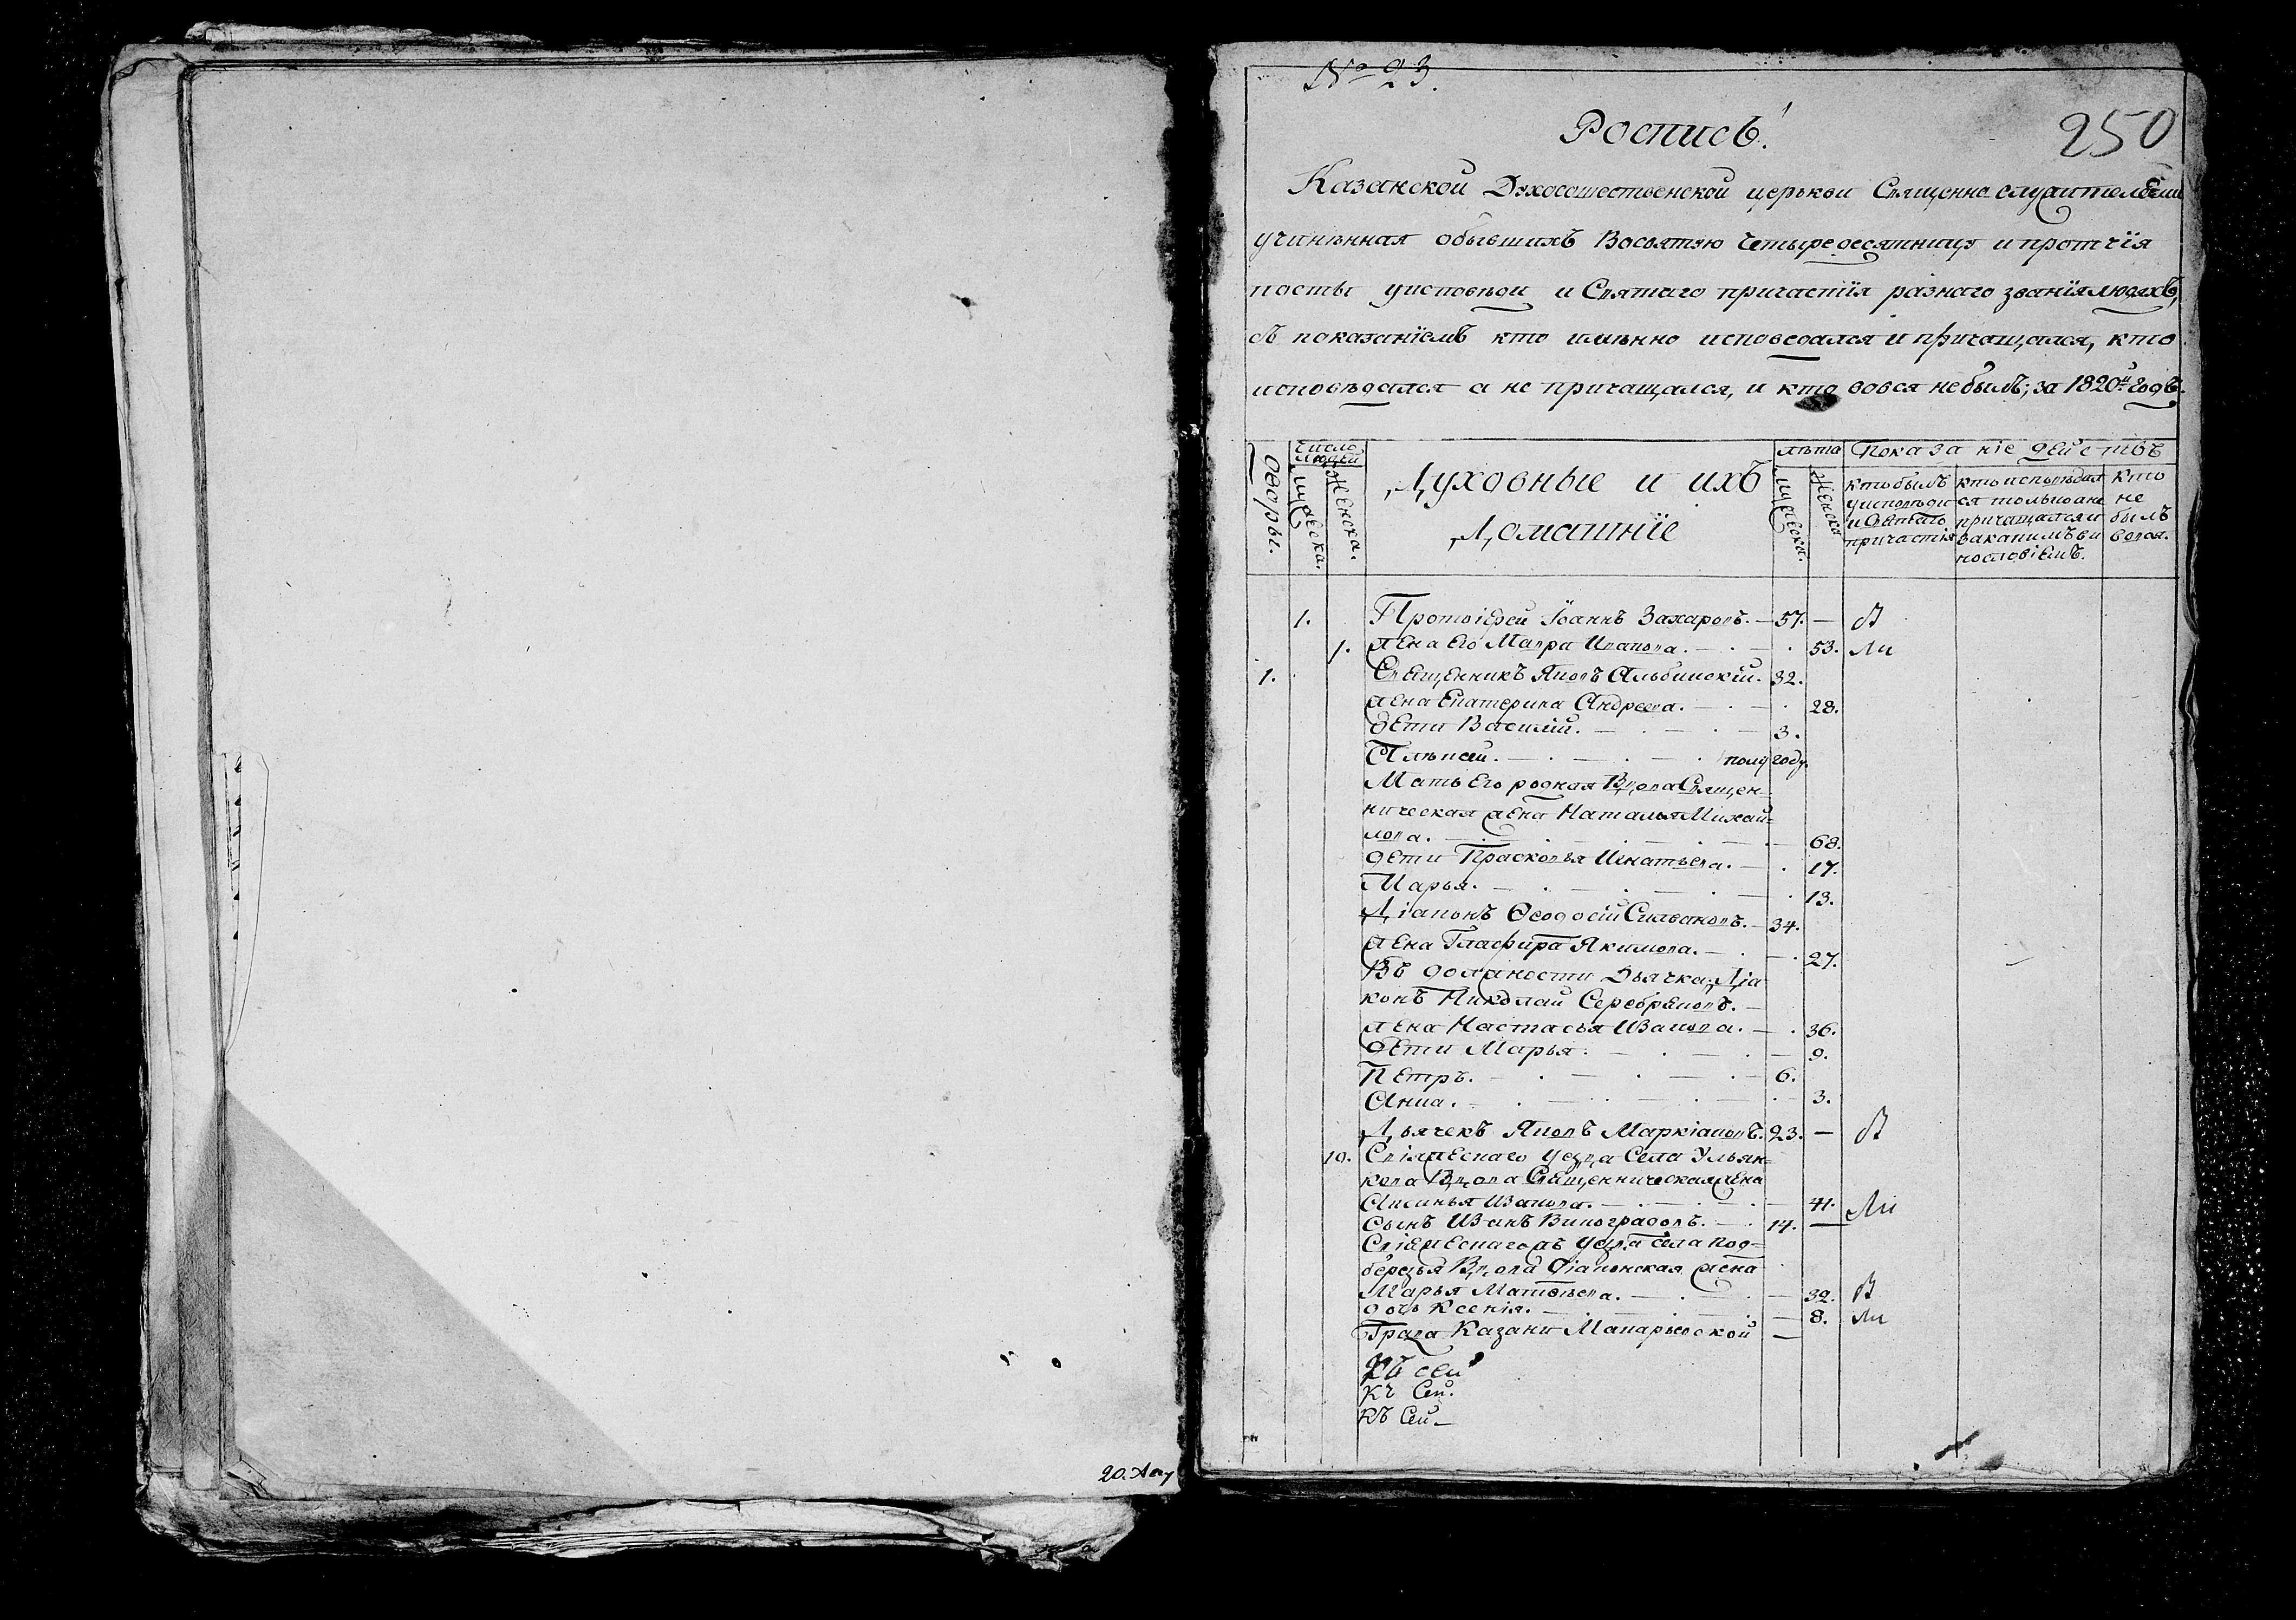 № 23.
250
Роспись!
Казанской Духосошественской церькви Священно-служительми
учинѣнная обывшихъ Восвятую Четыредесятницу и протчїя
посты уисповѣди и Святаго причастїя разнаго званїя людяхъ,
съ показанїемъ кто имѣнно исповедался и причащался, кто
исповѣдался а не причащался, и кто вовся небылъ; за 1820й годъ.
Дворы.
Число людей
мужеска.
Женска.
Духовные и ихъ
Домашнїе
лѣта
мужеска.
Женска
Показанїе действъ
кто былъ
уисповѣди
и Святаго
причастія
кто исповѣдал
ся только а не
причащался и
закакимъ ви
нословіемъ.
кто
не
былъ
вовся.
1. Протоіерей Їоаннъ Захаровъ. — 57. — В
1. жена Его Мавра Иванова. — 53. Ли
1. Священникъ Яковъ Альбинскій. 32.
жена Екатерина Андреева. — 28.
дети Василій. — 3.
Алѣксей. — полу году.
Мать Его родная Вдова Священ-
ническая жена Наталья Михай=
лова. — 68.
дети Прасковья Игнатьева. — 17.
Марья. — 13.
Діаконъ Ѳеодосій Сильвановъ. — 34.
жена Глафира Якимова. — 27.
Въ должности Дьячка Діа
конъ Николай Серебряковъ. —
жена Настасья Иванова. — 36.
дети Марья: — 9.
Петръ. — 6.
Анна. — 3.
Дьячекъ Яковъ Маркіановъ. 23. — В
10. Свіяжскаго уезда Села Ульян=
кова Вдова Священническая жена
Аксинья Иванова. — 41. Ли
Сынъ Иванъ Виноградовъ. — 14. —
уезда села Под=
березья Вдова Діаконская жена
Марья Матвѣева. — 32. В
дочь Ксенія. — 8. Ли
Града Казани Макарьевской —
Къ сей
Къ Сей.
Къ Сей —